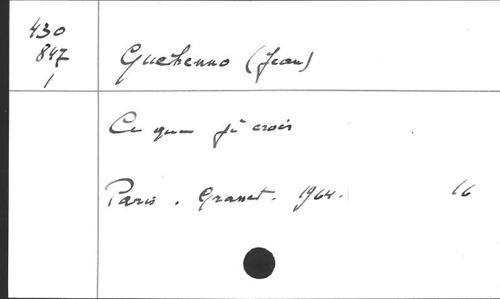 430
847
1
Guehenno (Jean)
Ce que je crois
Paris. Grasset. 1964. 16